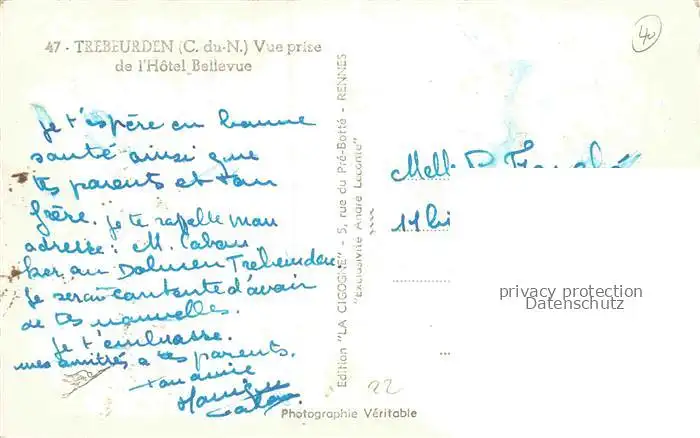 47 - TREBEURDEN (C. du-N.) Vue prise
de l'Hôtel Bellevue
40
je t'espère en bonne
santé ainsi que
tes parents et ton
frère. je te rappelle mon
adresse: M. Caban
ker an Dolmen Trebeurden
je serai contente d'avoir
de tes nouvelles.
je t'embrasse.
mes amitiés a tes parents.
ton amie
Monique
Caban
Edition "LA CIGOGNE" - 5, rue du Pré-Botté - RENNES
"Exclusivité André Leconte"
Melle
11
privacy protection
Datenschutz
22
Photographie Véritable